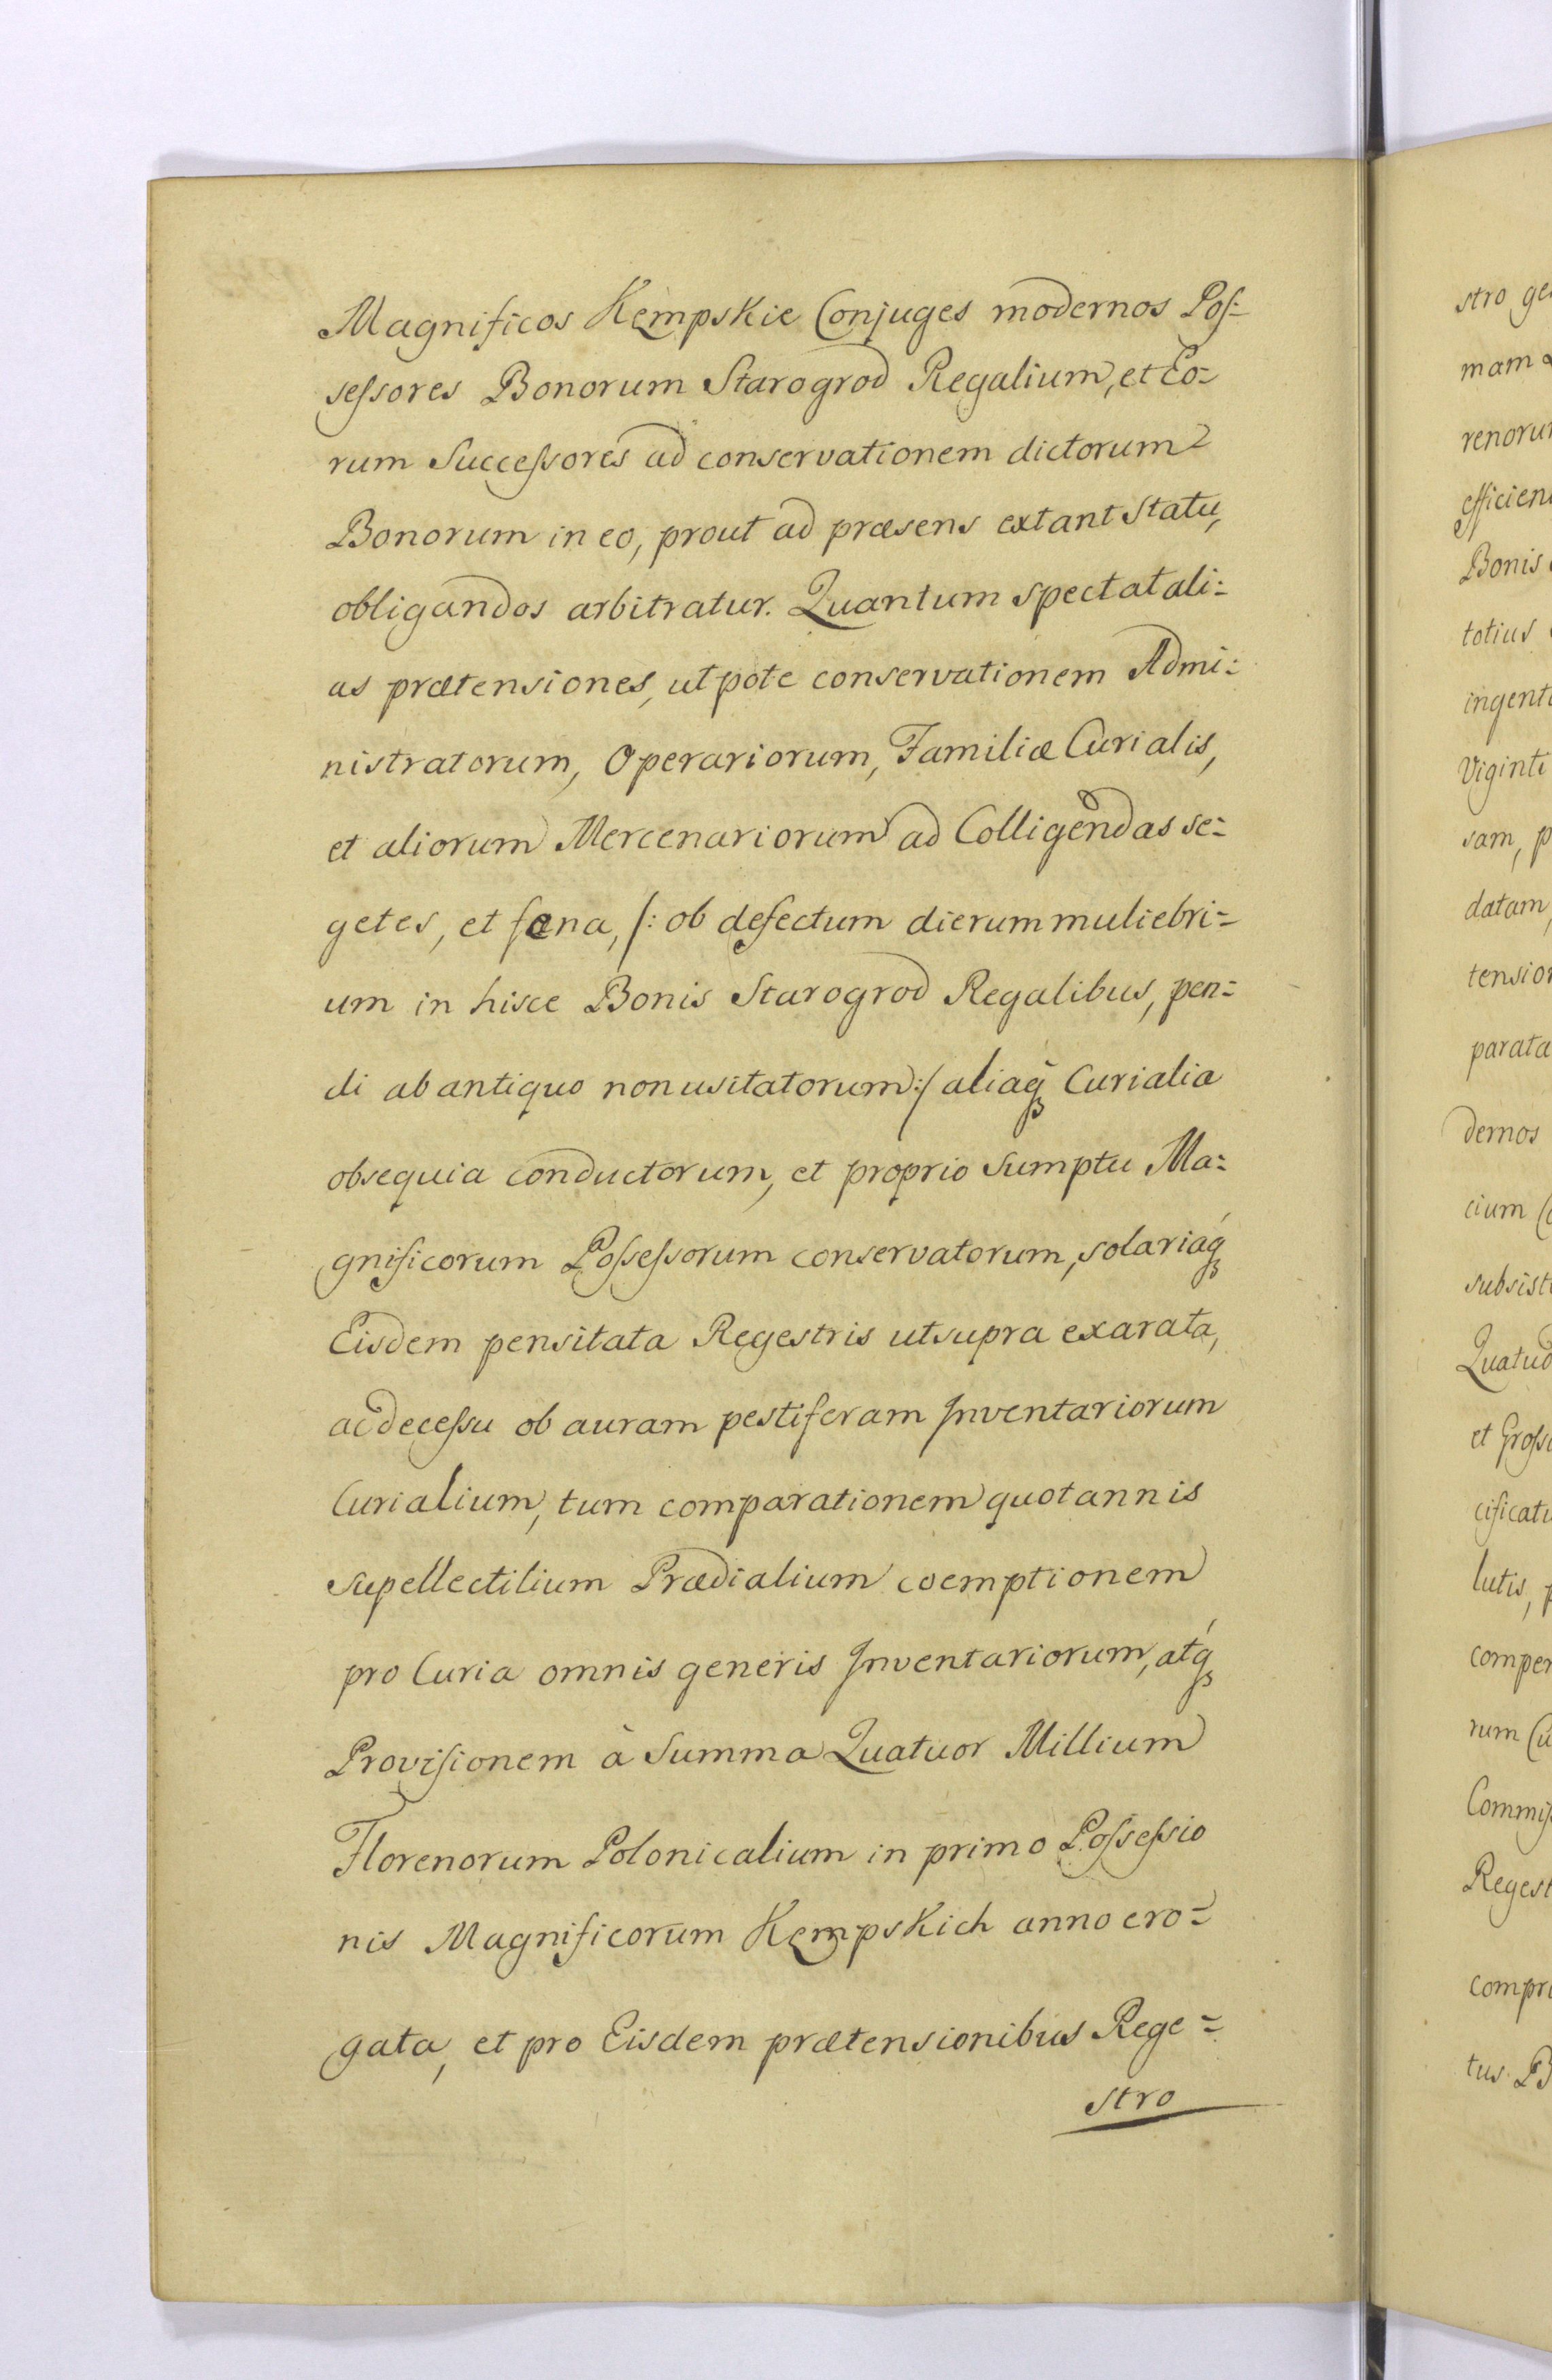 Magnificos Kempskie Conjuges modernos Pos:
sessores Bonorum Starogrod Regalium, et Eo=
rum Successores ad conservationem dictorum
Bonorum in eo, prout ad præsens extant statu,
obligandos arbitratur. Quantum spectat ali:
as prætensiones, utpote conservationem Admi:
nistratorum, Operariorum, Familiæ Curialis,
et aliorum Mercenariorum ad Colligendas se=
getes, et fœna, /: ob defectum dierum muliebri=
um in hisce Bonis Starogrod Regalibus, pen=
di ab antiquo non usitatorum :/ aliaq3 Curialia
obsequia conductorum, et proprio sumptu Ma=
gnificorum Possessorum conservatorum, solariaq3
Eisdem pensitata Regestris ut supra exarata,
ac decessu ob auram pestiferam Inventariorum
Curialium, tum comparationem quotannis
supellectilium Prædialium coemptionem
pro Curia omnis generis Inventariorum, atq3
Provisionem à Summa Quatuor Millium
Florenorum Polonicalium in primo Possessio
nis Magnificorum Kempskich anno ero=
gata, et pro Eisdem prætensionibus Rege=
stro
stro
mam
efficien
Bonis
totius
Viginti
sam, p
datam
parata
demos
cium
subsist
Quatuo
lutis, p
rum
tus